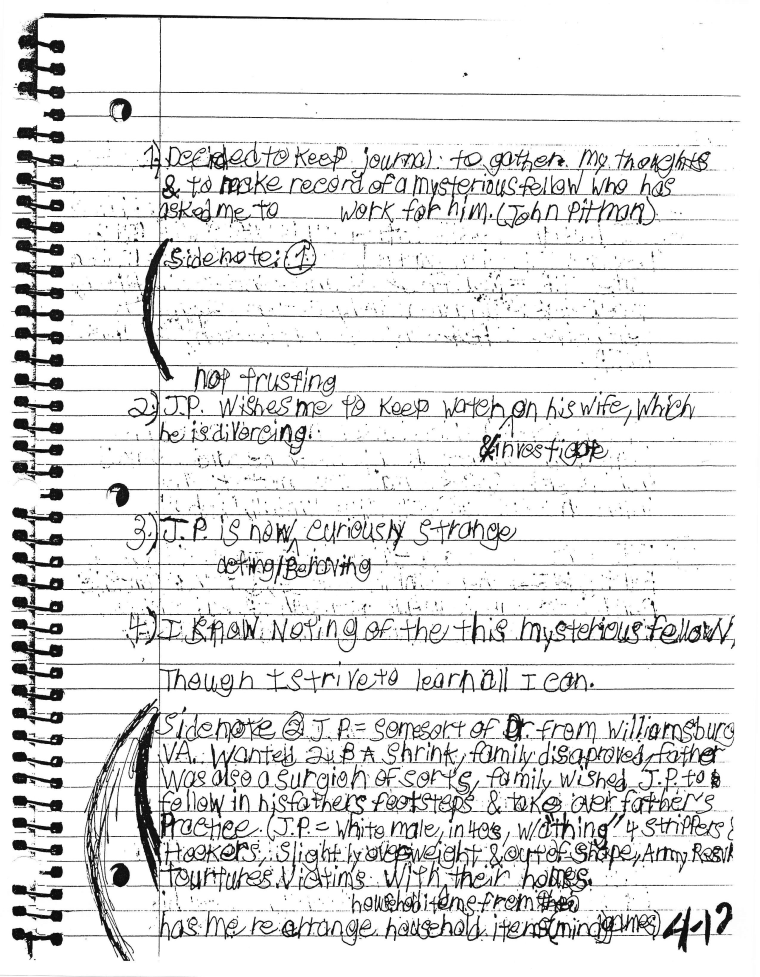 1) Decided to keep journal to gather my thoughts
& to make record of a mysterious fellow who has
asked me to work for him. (John Pitman)
Sidenote: 1
not trusting
2) J.P. Wishes me to keep watch on his wife, which
he is divorcing.
& investigate
3.) J.P. is now, curiously strange
acting/Behaving
4.) I Know Noting of the this mysterious fellow,
Though I strive to learn all I can.
Sidenote 2 J.P. = some sort of Dr. from Williamsburg
VA. Wanted 2 B A Shrink, family disaproved, father
was also a surgion of sorts, family wished J.P. to
follow in his fathers footsteps & take over father's
Practice. (J.P. = white male, in 40s, w/a "thing" 4 strippers &
Hookers, slightly overweight & out of shape, Army Resv
tourtures victims with their homes.
household items from
has me re arrange household items (mind games) 4-12